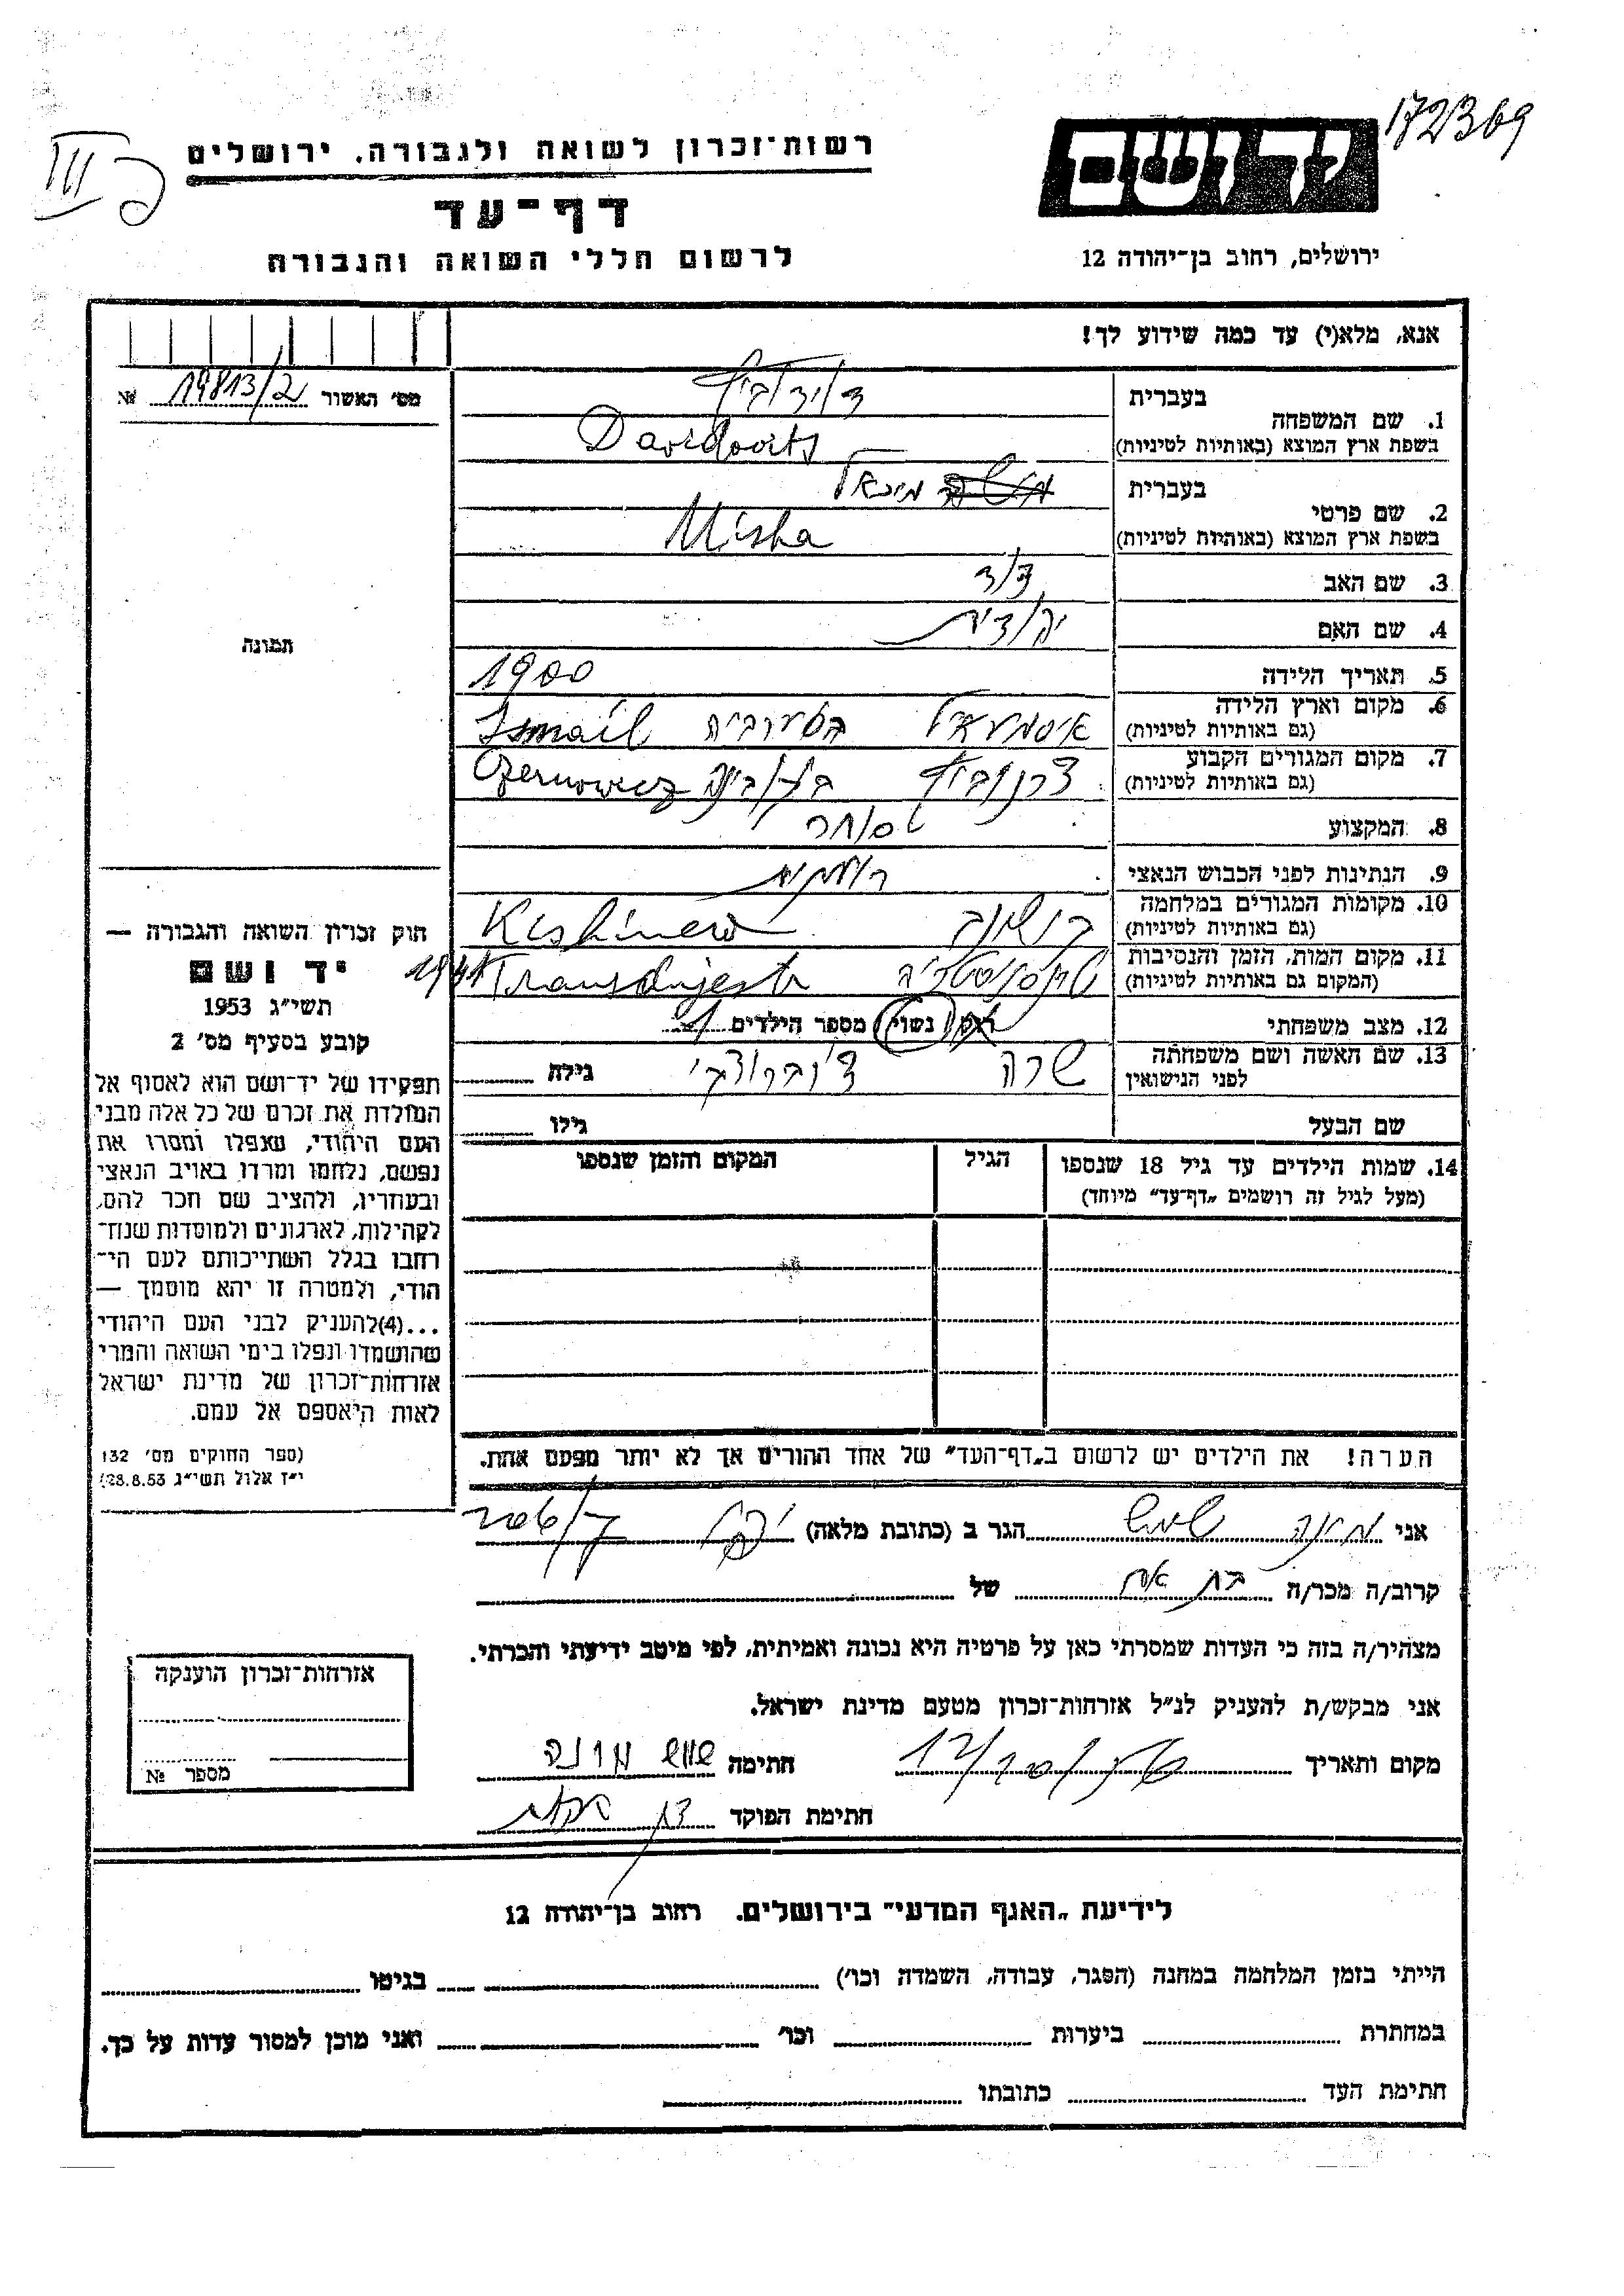 172369
יד ושם
רשות־זכרון לשואה ולגבורה, ירושלים
III
דף־עד
ירושלים, רחוב בן־יהודה 12
לרשום חללי השואה והגבורה
אנא, מלא(י) עד כמה שידוע לך!
מס' האשור 19813/2 №
תמונה
1. שם המשפחה בעברית דוידוביץ
בשפת ארץ המוצא (באותיות לטיניות) Davidovits
2. שם פרטי בעברית מיכאל
בשפת ארץ המוצא (באותיות לטיניות) Misha
3. שם האב דוד
4. שם האם יהודית
5. תאריך הלידה 1900
6. מקום וארץ הלידה
(גם באותיות לטיניות) Ismail
7. מקום המגורים הקבוע
(גם באותיות לטיניות) Czernowicz
8. המקצוע סוחר
9. הנתינות לפני הכבוש הנאצי
10. מקומות המגורים במלחמה
(גם באותיות לטיניות) Kishinew
11. מקום המות, הזמן והנסיבות
(המקום גם באותיות לטיניות) Transdnjestr 1941
12. מצב משפחתי רווק נשוי מספר הילדים 1
13. שם האשה ושם משפחתה שרה גילה
לפני הנישואין
שם הבעל גילו
14. שמות הילדים עד גיל 18 שנספו הגיל המקום והזמן שנספו
(מעל לגיל זה רושמים „דף־עד" מיוחד)
הערה! את הילדים יש לרשום ב„דף־העד" של אחד ההורים אך לא יותר מפעם אחת.
חוק זכרון השואה והגבורה —
יד ושם
תשי"ג 1953
קובע בסעיף מס' 2
תפקידו של יד־ושם הוא לאסוף אל
המולדת את זכרם של כל אלה מבני
העם היהודי, שנפלו ומסרו את
נפשם, נלחמו ומרדו באויב הנאצי
ובעוזריו, ולהציב שם וזכר להם,
לקהילות, לארגונים ולמוסדות שנח־
רבו בגלל השתייכותם לעם הי־
הודי, ולמטרה זו יהא מוסמך —
...(4)להעניק לבני העם היהודי
שהושמדו ונפלו בימי השואה והמרי
אזרחות־זכרון של מדינת ישראל
לאות היאספם אל עמם.
(ספר החוקים מס' 132
י"ז אלול תשי"ג 28.8.53)
אני שמש הגר ב (כתובת מלאה) 206/7
קרוב/ה מכר/ה בת אח של
מצהיר/ה בזה כי העדות שמסרתי כאן על פרטיה היא נכונה ואמיתית, לפי מיטב ידיעתי והכרתי.
אני מבקש/ת להעניק לנ"ל אזרחות־זכרון מטעם מדינת ישראל.
מקום ותאריך חתימה שמש
חתימת הפוקד
אזרחות־זכרון הוענקה
מספר №
לידיעת „האגף המדעי" בירושלים. רחוב בן־יהודה 12
הייתי בזמן המלחמה במחנה (הסגר, עבודה, השמדה וכו') בגיטו
במחתרת ביערות וכו' ואני מוכן למסור עדות על כך.
חתימת העד כתובתו